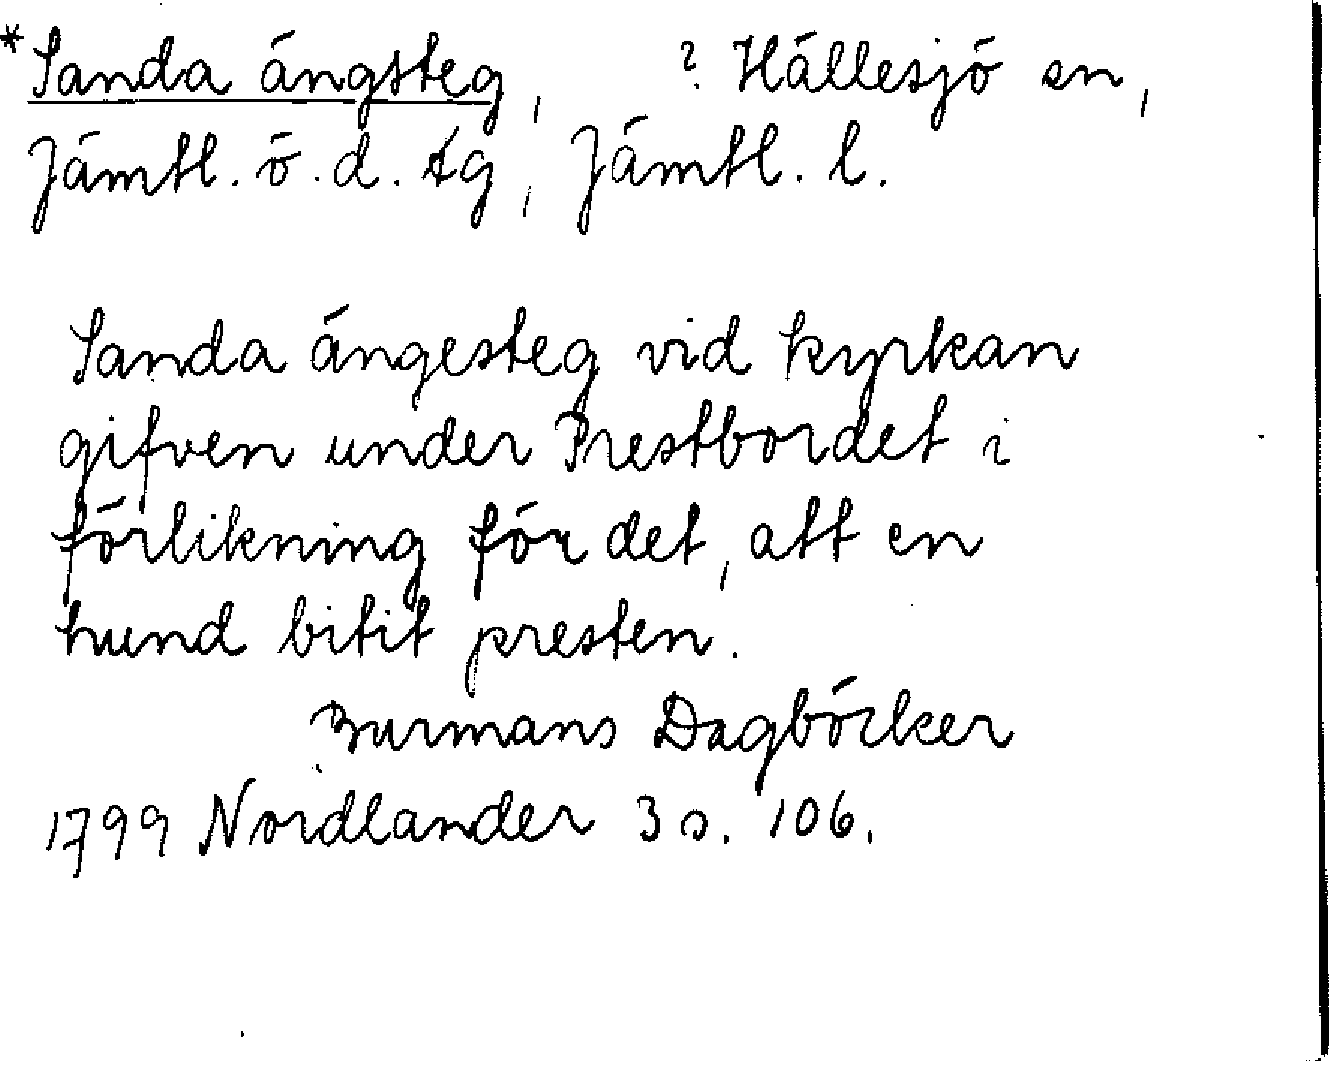 *Sanda ängsteg, ? Hällesjö sn,
Jämtl. ö. d. tg, Jämtl. l.
Sanda ängesteg vid kyrkan
gifven under Prestbordet i
förlikning för det, att en
hund bitit presten.
Burmans Dagböcker
1799 Nordlander 3 s. 106.